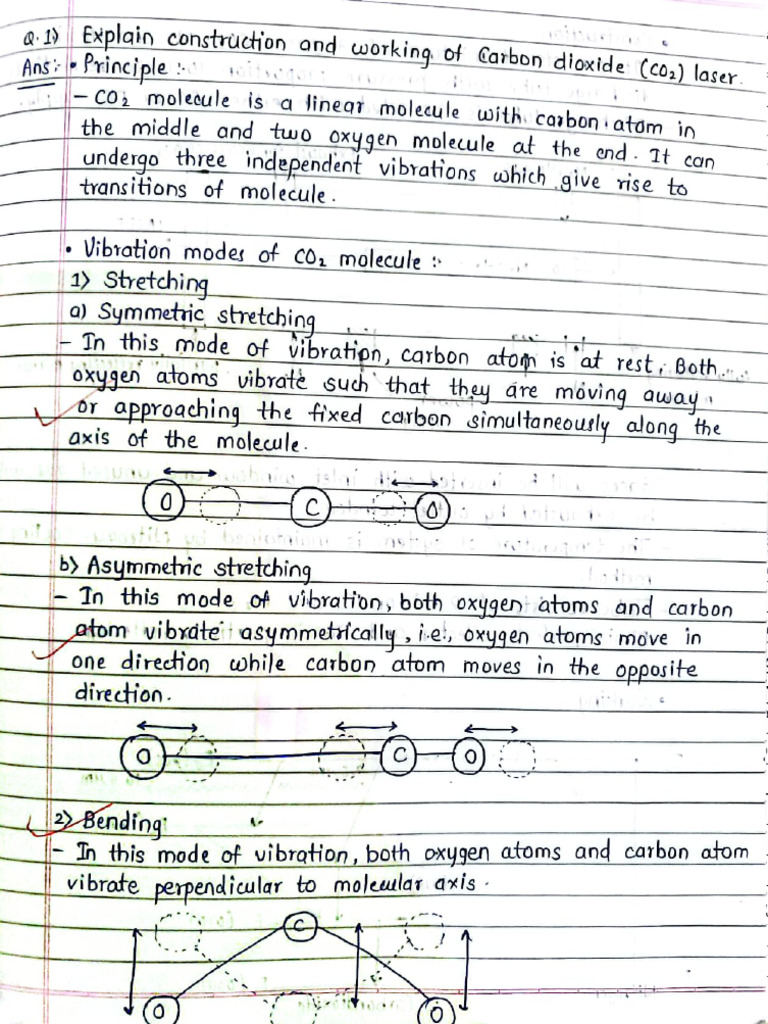 Q.1) Explain construction and working of Carbon dioxide (CO₂) laser.
Ans:- • Principle :-
- CO₂ molecule is a linear molecule with carbon atom in
the middle and two oxygen molecule at the end. It can
undergo three independent vibrations which give rise to
transitions of molecule.
• Vibration modes of CO₂ molecule :-
1) Stretching
a) Symmetric stretching
- In this mode of vibration, carbon atom is at rest. Both
oxygen atoms vibrate such that they are moving away
or approaching the fixed carbon simultaneously along the
axis of the molecule.
O C O
b) Asymmetric stretching
- In this mode of vibration, both oxygen atoms and carbon
atom vibrate asymmetrically, i.e., oxygen atoms move in
one direction while carbon atom moves in the opposite
direction.
O C O
2) Bending:
- In this mode of vibration, both oxygen atoms and carbon atom
vibrate perpendicular to molecular axis.
C
O O